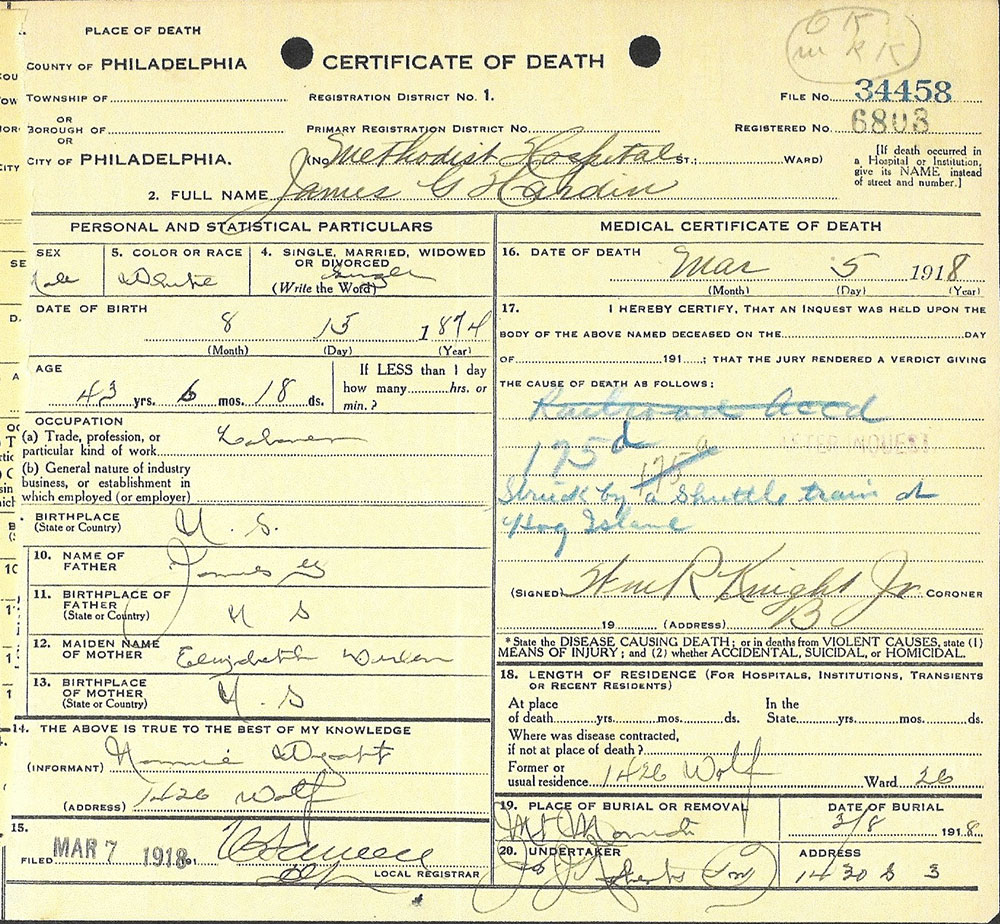 PLACE OF DEATH
COUNTY OF PHILADELPHIA
CERTIFICATE OF DEATH
OK
TOWNSHIP OF
REGISTRATION DISTRICT No. 1.
FILE No. 34458
OR
BOROUGH OF
PRIMARY REGISTRATION DISTRICT No.
REGISTERED No. 6803
OR
CITY OF PHILADELPHIA.
(No. Methodist Hospital ST.; WARD)
[If death occurred in
a Hospital or Institution,
give its NAME instead
of street and number.]
2. FULL NAME James G Hardin
PERSONAL AND STATISTICAL PARTICULARS
SEX
Male
5. COLOR OR RACE
White
4. SINGLE, MARRIED, WIDOWED
OR DIVORCED
(Write the Word)
Single
DATE OF BIRTH
8 15 1874
(Month) (Day) (Year)
AGE
43 yrs. 6 mos. 18 ds.
If LESS than 1 day
how many hrs. or
min.?
OCCUPATION
(a) Trade, profession, or
particular kind of work Laborer
(b) General nature of industry
business, or establishment in
which employed (or employer)
BIRTHPLACE
(State or Country)
U. S.
10. NAME OF
FATHER
James
11. BIRTHPLACE OF
FATHER
(State or Country)
U S
12. MAIDEN NAME
OF MOTHER
Elizabeth
13. BIRTHPLACE
OF MOTHER
(State or Country)
U. S
14. THE ABOVE IS TRUE TO THE BEST OF MY KNOWLEDGE
(INFORMANT) Nannie
(ADDRESS) 1426 Wolf
15.
FILED MAR 7 1918
LOCAL REGISTRAR
MEDICAL CERTIFICATE OF DEATH
16. DATE OF DEATH
Mar 5 1918
(Month) (Day) (Year)
17. I HEREBY CERTIFY, THAT AN INQUEST WAS HELD UPON THE
BODY OF THE ABOVE NAMED DECEASED ON THE DAY
OF 191 ; THAT THE JURY RENDERED A VERDICT GIVING
THE CAUSE OF DEATH AS FOLLOWS:
Railroad Accd
175 d
175 a
INQUEST
Struck by a Shuttle train at
Hog Island
(SIGNED) Wm R Knight Jr CORONER
19 (ADDRESS) B
*State the DISEASE CAUSING DEATH; or in deaths from VIOLENT CAUSES, state (1)
MEANS OF INJURY; and (2) whether ACCIDENTAL, SUICIDAL, or HOMICIDAL.
18. LENGTH OF RESIDENCE (FOR HOSPITALS, INSTITUTIONS, TRANSIENTS
OR RECENT RESIDENTS)
At place
of death yrs. mos. ds.
In the
State yrs. mos. ds.
Where was disease contracted,
if not at place of death?
Former or
usual residence 1426 Wolf Ward 26
19. PLACE OF BURIAL OR REMOVAL
Mt Moriah
DATE OF BURIAL
3/8 1918
20. UNDERTAKER
ADDRESS
1430 S 3